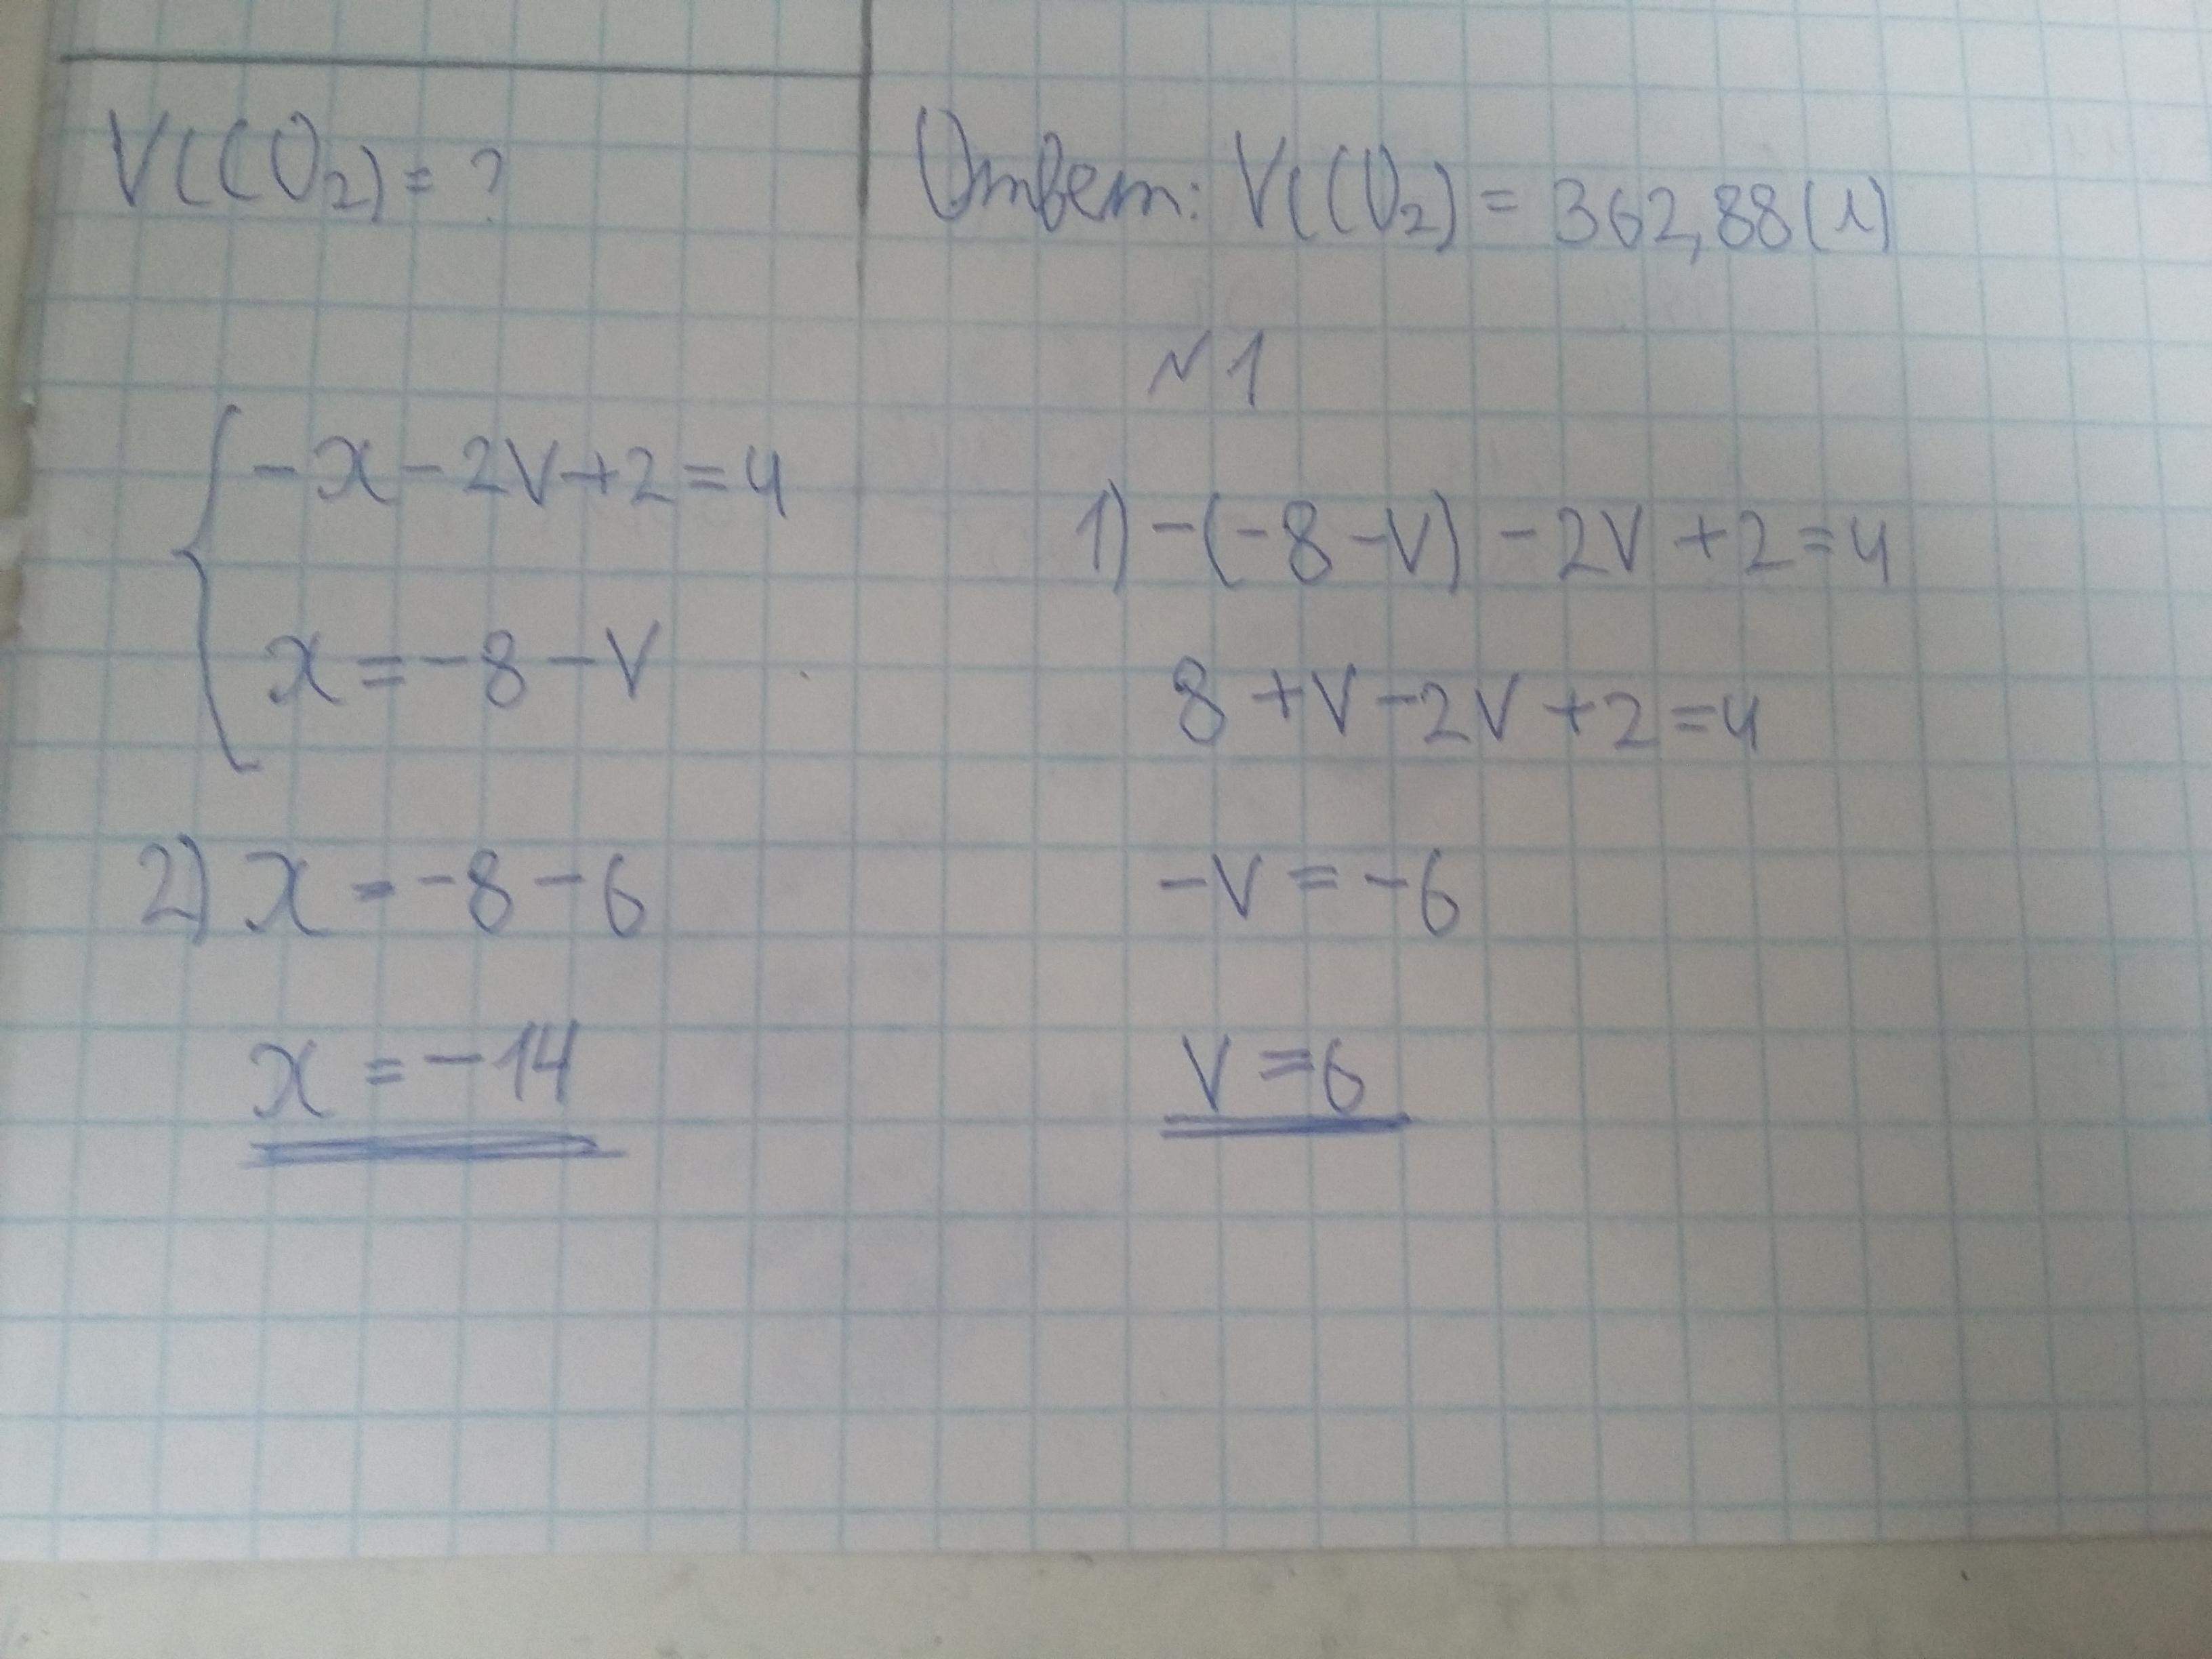 V(CO₂) = ?
Ответ: V(CO₂) = 362,88(л)
№1
-x-2V+2=4
x=-8-V
1) -(-8-V)-2V+2=4
8+V-2V+2=4
-V=-6
V=6
2) x=-8-6
x=-14